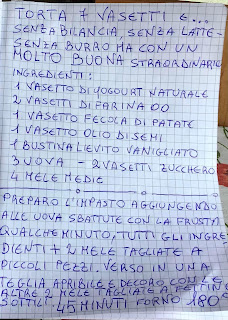 TORTA 7 VASETTI E...
SENZA BILANCIA, SENZA LATTE-
SENZA BURRO HA CON UN
MOLTO BUONA STRAORDINARIO
INGREDIENTI:
1 VASETTO DI YOGOURT NATURALE
2 VASETTI DI FARINA 00
1 VASETTO FECOLA DI PATATE
1 VASETTO OLIO DI SEMI
1 BUSTINA LIEVITO VANIGLIATO
3 UOVA - 2 VASETTI ZUCCHERO
4 MELE MEDIE
PREPARO L'IMPASTO AGGIUNGENDO
ALLE UOVA SBATTUTE CON LA FRUSTA
QUALCHE MINUTO, TUTTI GLI INGRE
DIENTI + 2 MELE TAGLIATE A
PICCOLI PEZZI. VERSO IN UNA
TEGLIA APRIBILE E DECORO CON LE
ALTRE 2 MELE TAGLIATE A FETTINE
SOTTILI. 45 MINUTI FORNO 180°